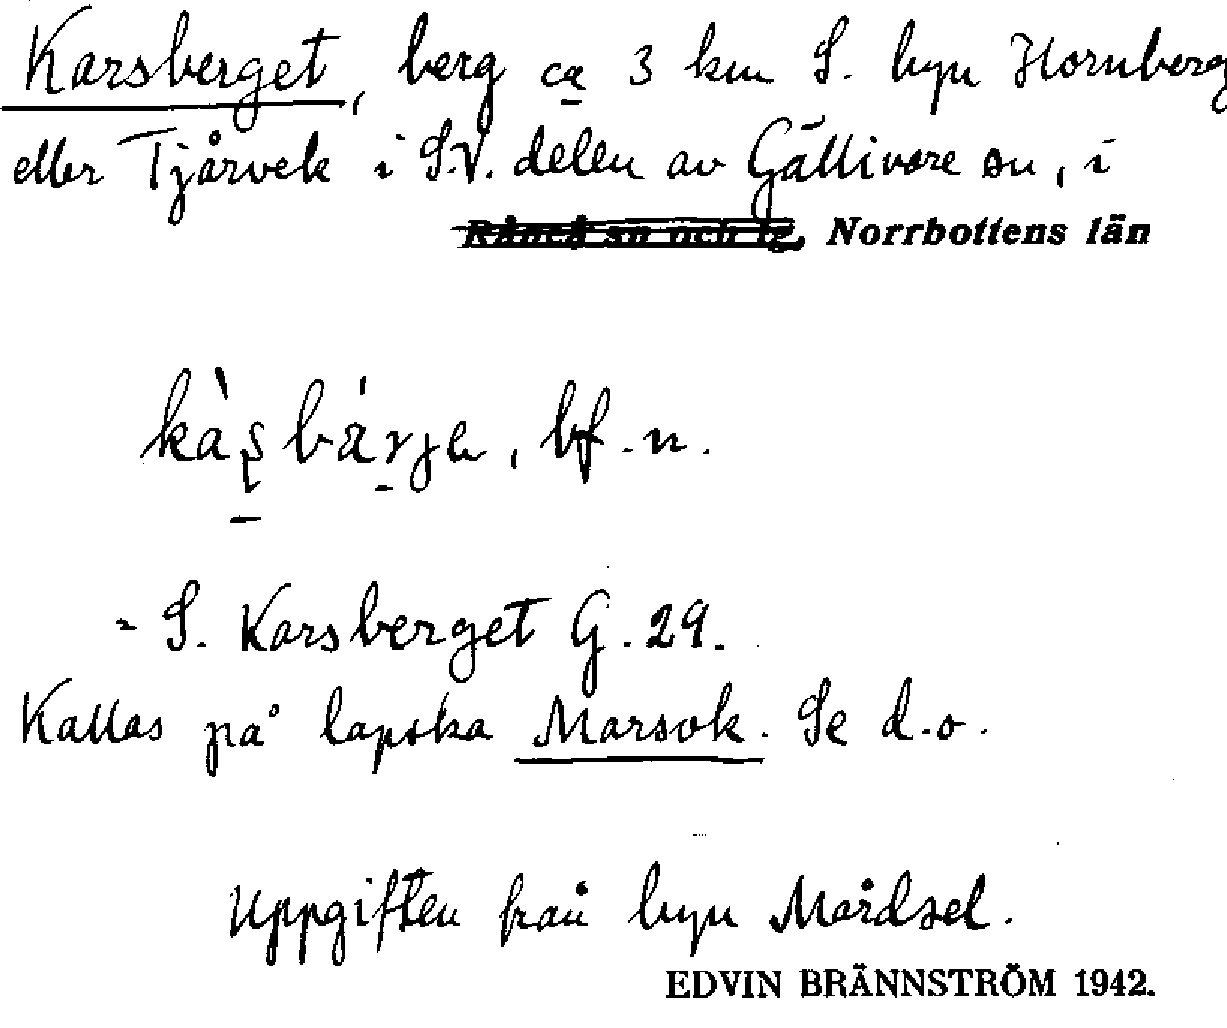 Karsberget, berg ca 3 km S. byn Hornberg
eller Tjårvek i S.V. delen av Gällivare sn, i
Råneå sn och lg, Norrbottens län
bf. n.
= S. Karsberget G. 29.
Kallas på lapska Marsok. Se d.o.
Uppgiften från byn Mårdsel.
EDVIN BRÄNNSTRÖM 1942.